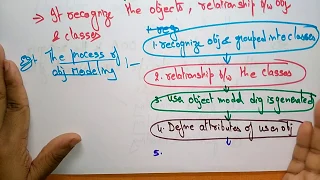 → It recognize the objects, relationship b/w obj
& classes
→ The process of
obj modeling :-
1. recognize obj & grouped into classes
2. relationship b/w the classes
3. user object model dig is generated
4. Define attributes of user obj
5.